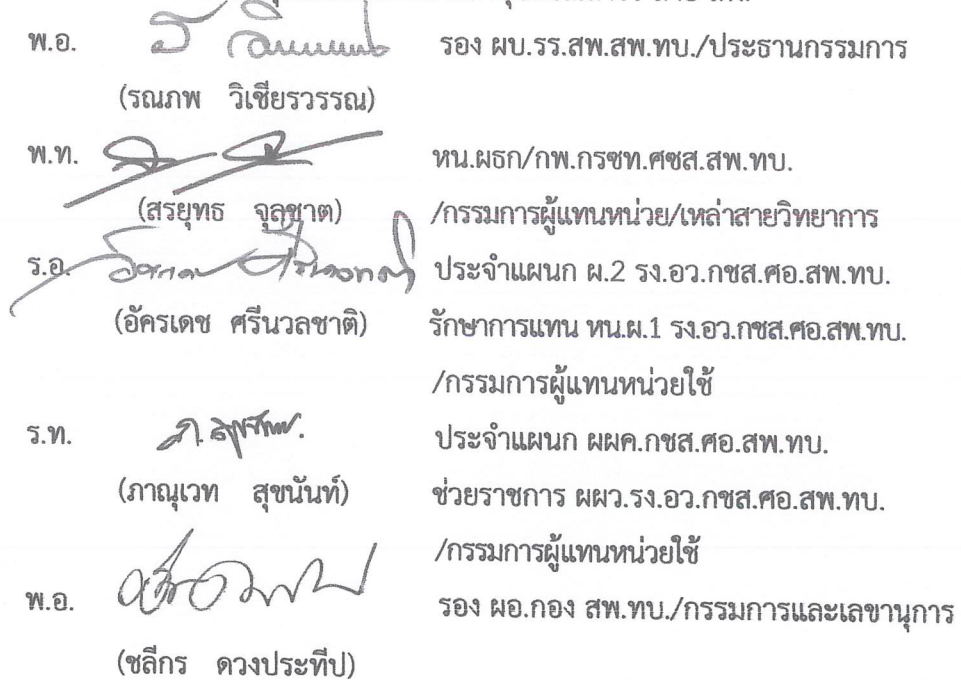 พ.อ. รอง ผบ.รร.สพ.สพ.ทบ./ประธานกรรมการ
(รณภพ วิเชียรวรรณ)
พ.ท. หน.ผธก/กพ.กรซท.ศซส.สพ.ทบ.
(สรยุทธ จุลชาต) /กรรมการผู้แทนหน่วย/เหล่าสายวิทยาการ
ร.อ. ประจำแผนก ผ.2 รง.อว.กซส.ศอ.สพ.ทบ.
(อัครเดช ศรีนวลชาติ) รักษาการแทน หน.ผ.1 รง.อว.กซส.ศอ.สพ.ทบ.
/กรรมการผู้แทนหน่วยใช้
ร.ท. ประจำแผนก ผผค.กซส.ศอ.สพ.ทบ.
(ภาณุเวท สุขนันท์) ช่วยราชการ ผผว.รง.อว.กซส.ศอ.สพ.ทบ.
/กรรมการผู้แทนหน่วยใช้
พ.อ. รอง ผอ.กอง สพ.ทบ./กรรมการและเลขานุการ
(ชลีกร ดวงประทีป)